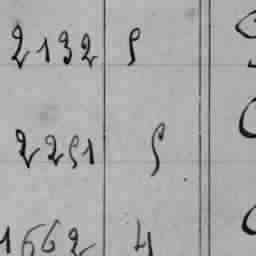 2132 5
2251 5
1662 4